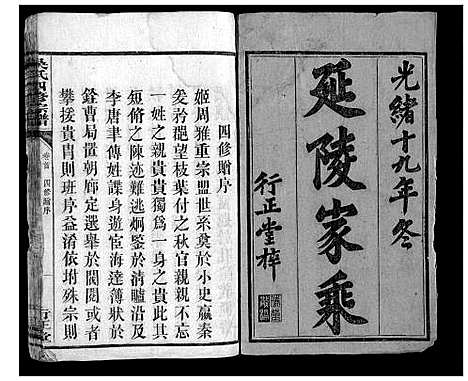 光緒十九年冬
延陵家乘
行正堂梓
四修贈序
姬周雅重宗盟世系奠於小史嬴秦
爰矜郡望枝葉付之秋官親親不忘
一姓之親貴貴獨為一身之貴此其
短脩之陳迹難逃炯鑒於清臚沿及
李唐聿傳姓譜身遊宦海達薄狀於
銓曹局置朝廊定選舉於閥閱或者
攀援貴胄則班序益淆依坿殊宗則
吳氏四修宗譜
卷首
四修贈序
行正堂